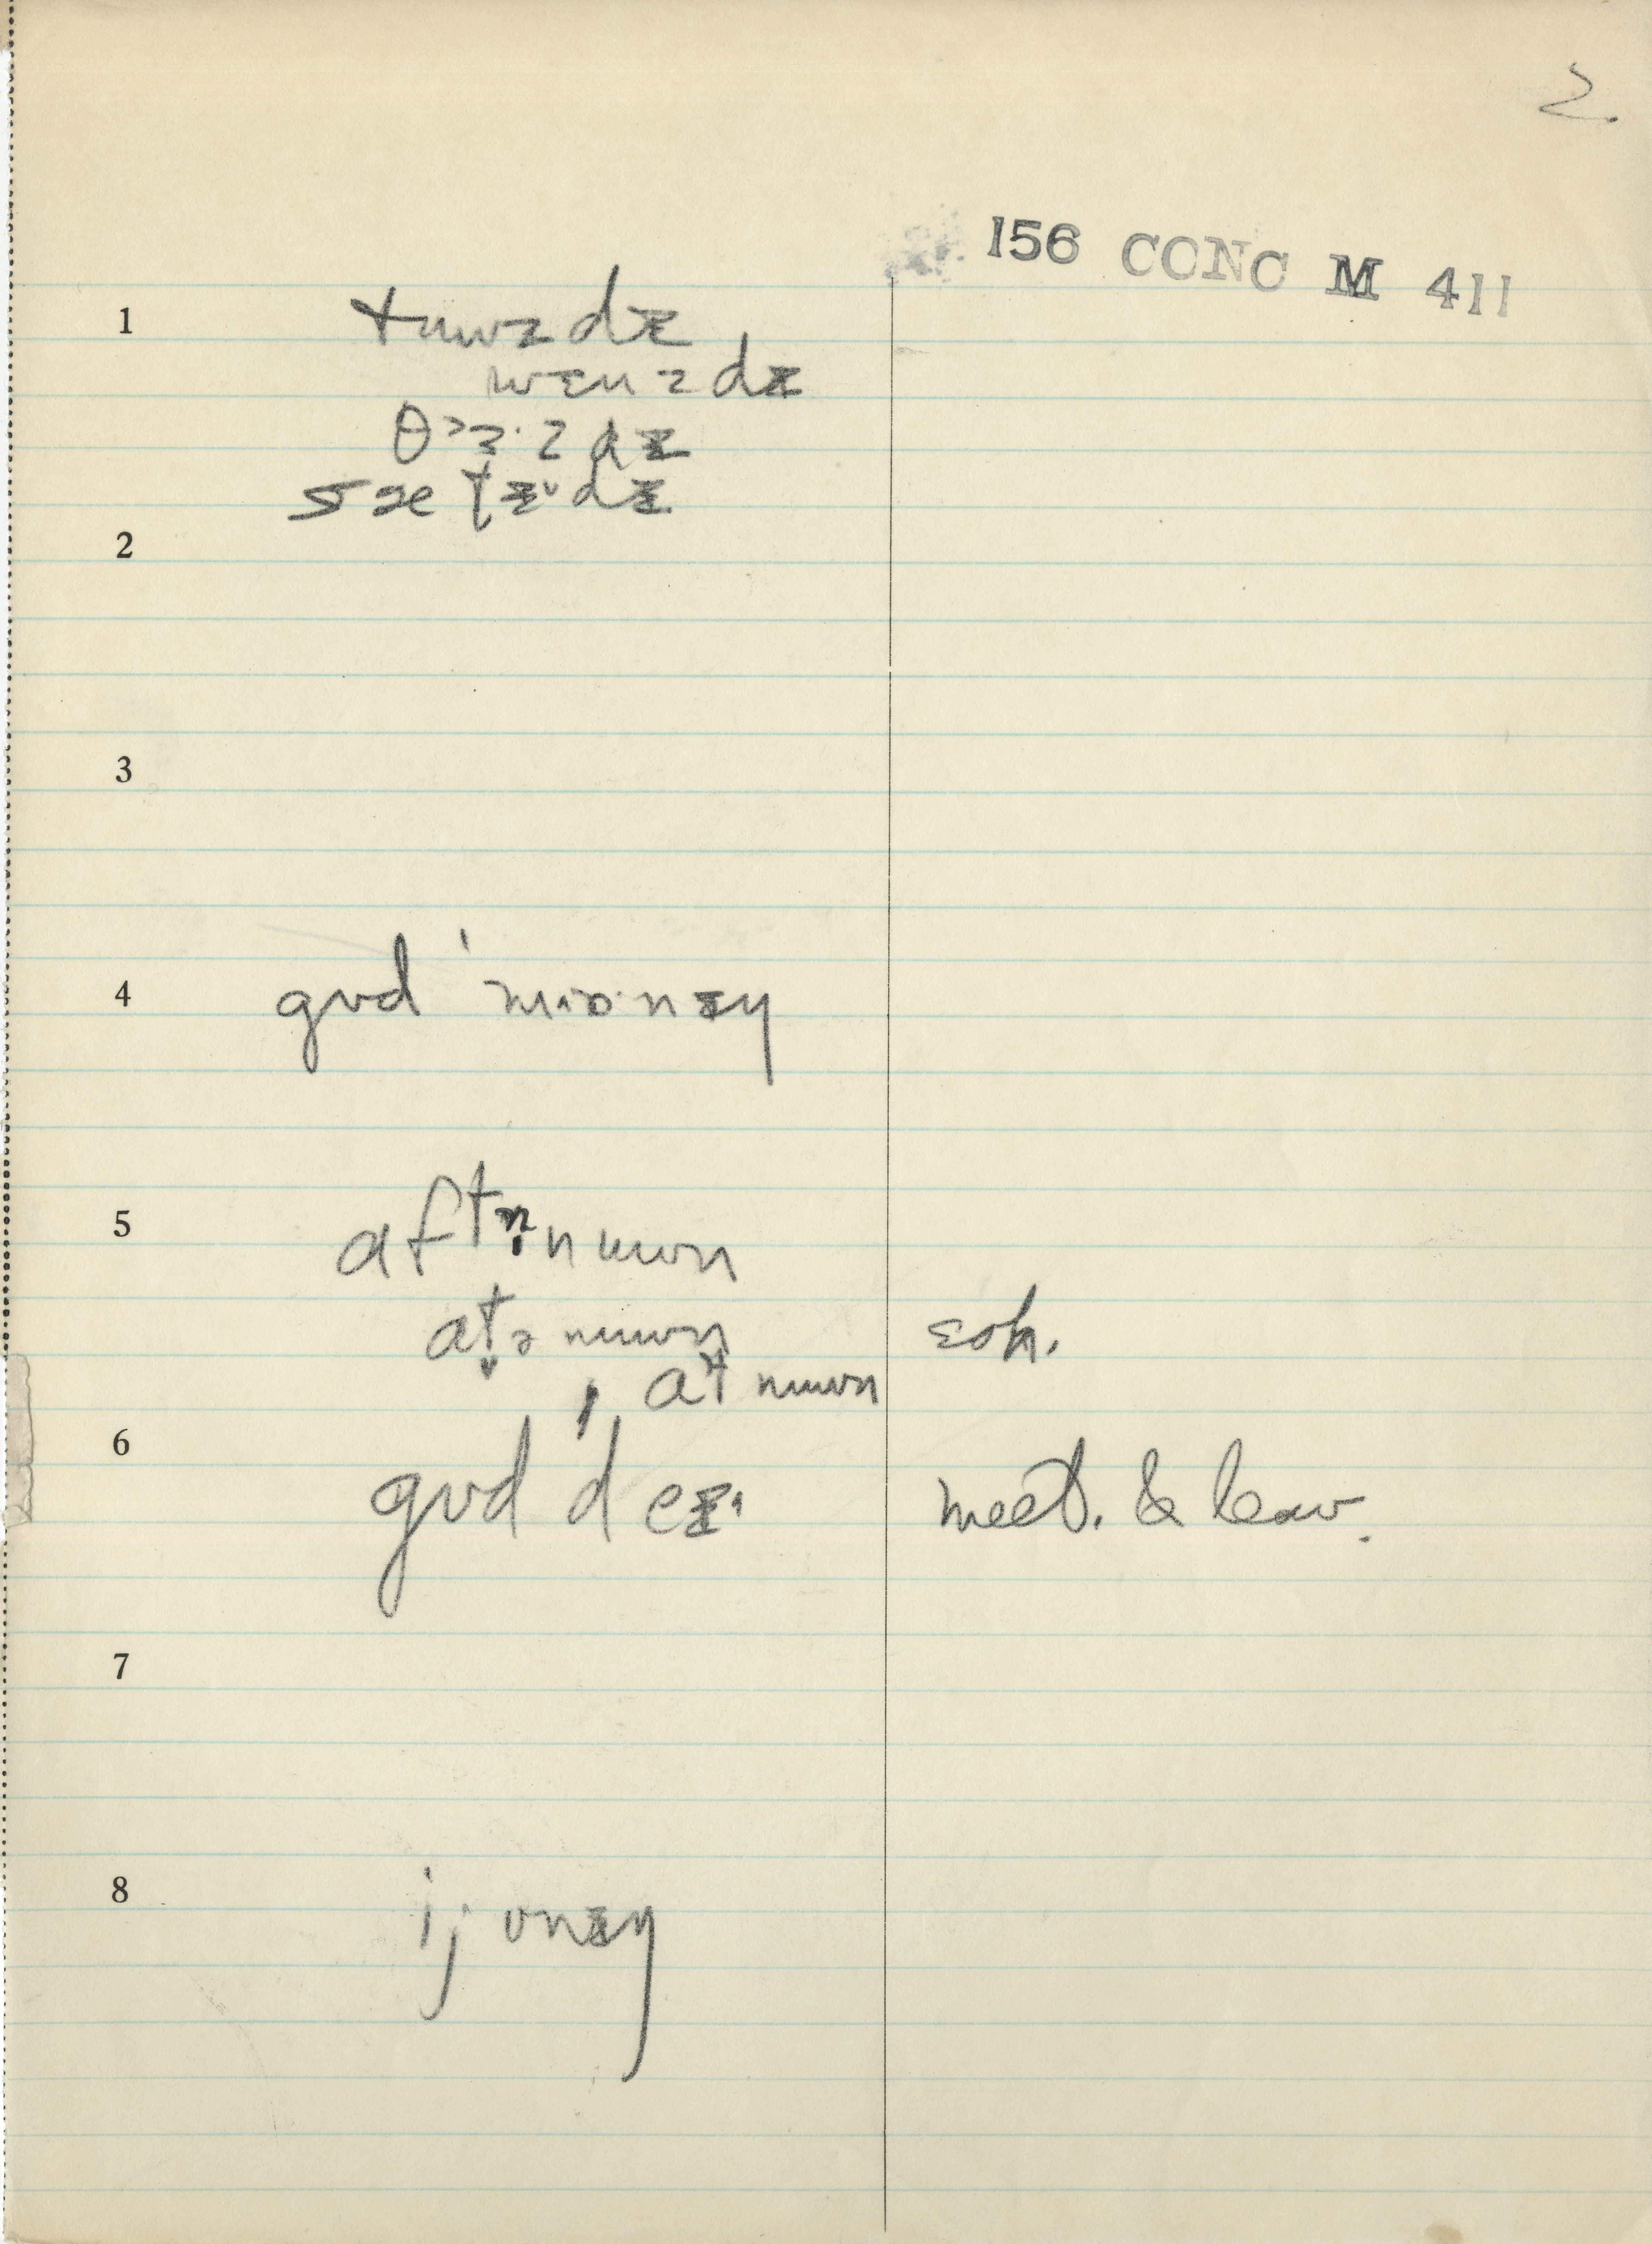 2.
156 CONC M 411
1
tuwzdɪ
wɛnzdɪ
θɜ·zdɪ
2
3
4 gʊd 'mɒ·nɪŋ
5
aftənuwn
atənuwn eoh.
, atnuwn
6
gʊd 'deɪ meet. & leav.
7
8
ijvnɪŋ